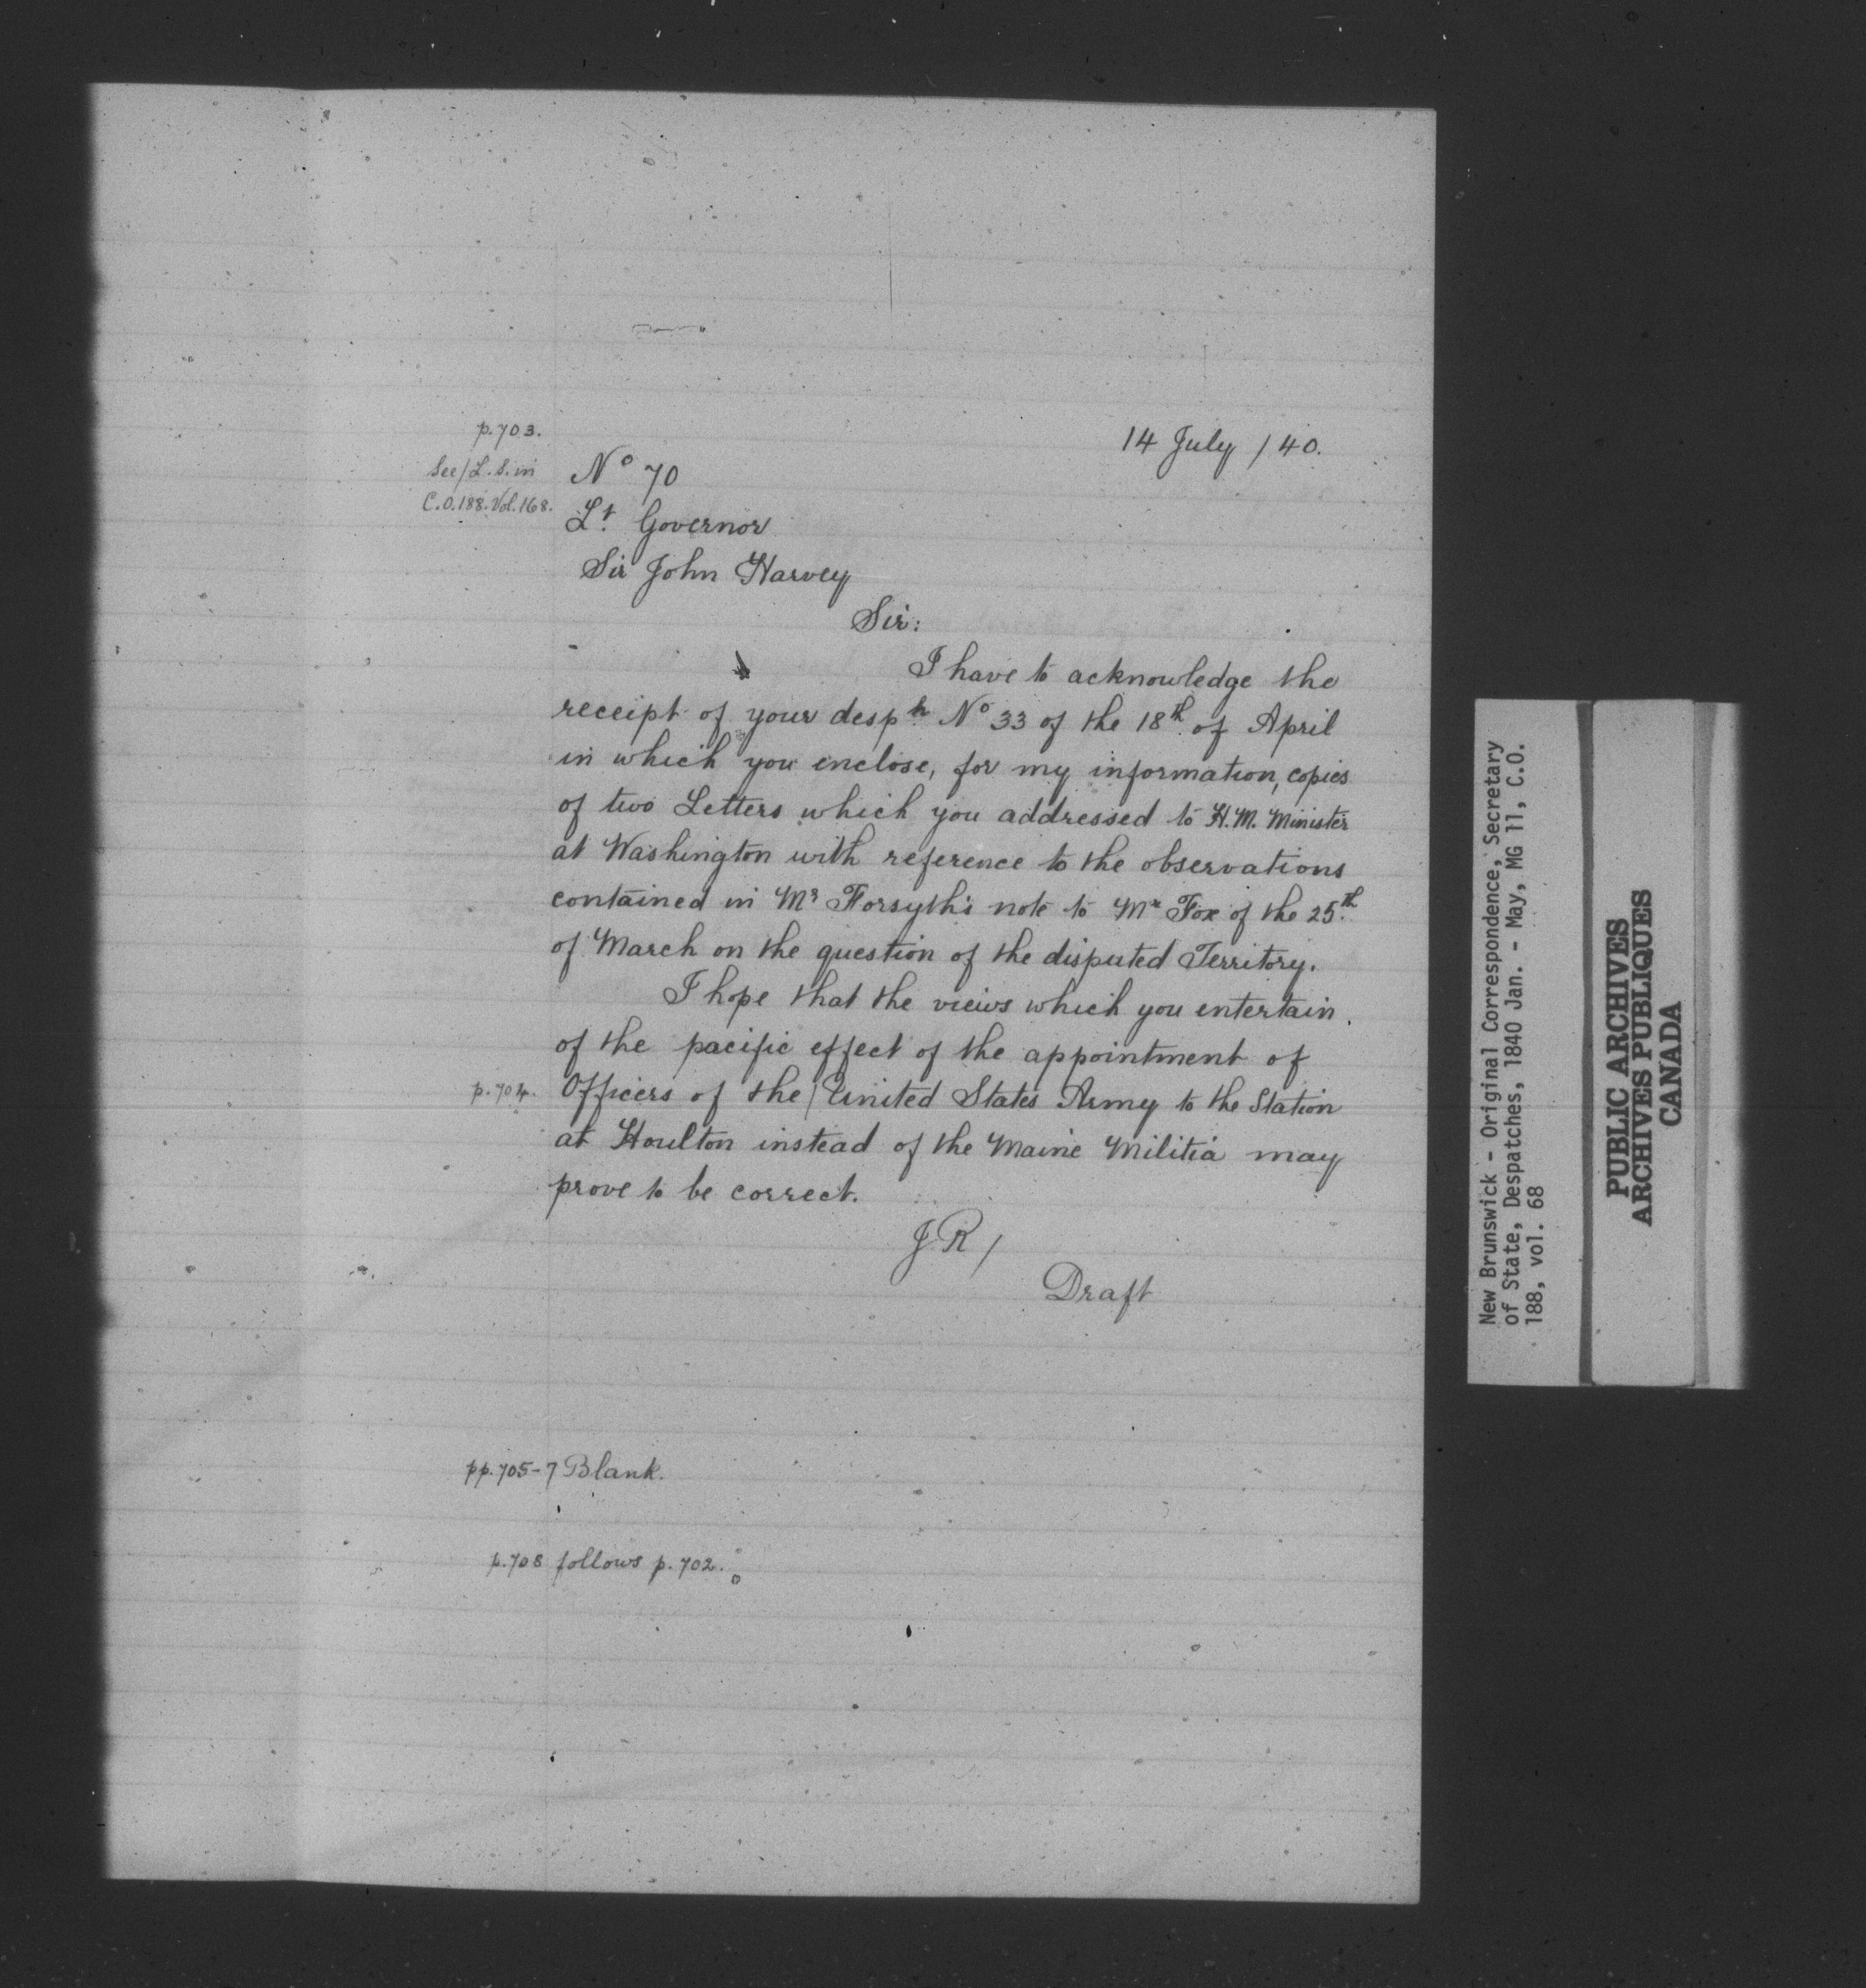 p.703.
14 July / 40.
See/L.S. in
C.O.188.Vol.168.
Nº 70
Lt. Governor
Sir John Harvey
Sir:
I have to acknowledge the
receipt of your desph Nº 33 of the 18th. of April
in which you enclose, for my information, copies
of two Letters which you addressed to H.M. Minister
at Washington with reference to the observations
contained in Mr Forsyth's note to Mr Fox of the 25th.
of March on the question of the disputed Territory.
I hope that the views which you entertain
of the pacific effect of the appointment of
p.704. Officers of the / United States Army to the Station
at Houlton instead of the Maine Militia may
prove to be correct.
J.R /
Draft
pp.705-7 Blank.
p.708 follows p.702.
New Brunswick - Original Correspondence, Secretary
of State, Despatches, 1840 Jan. - May, MG 11, C.O.
188, vol. 68
PUBLIC ARCHIVES
ARCHIVES PUBLIQUES
CANADA